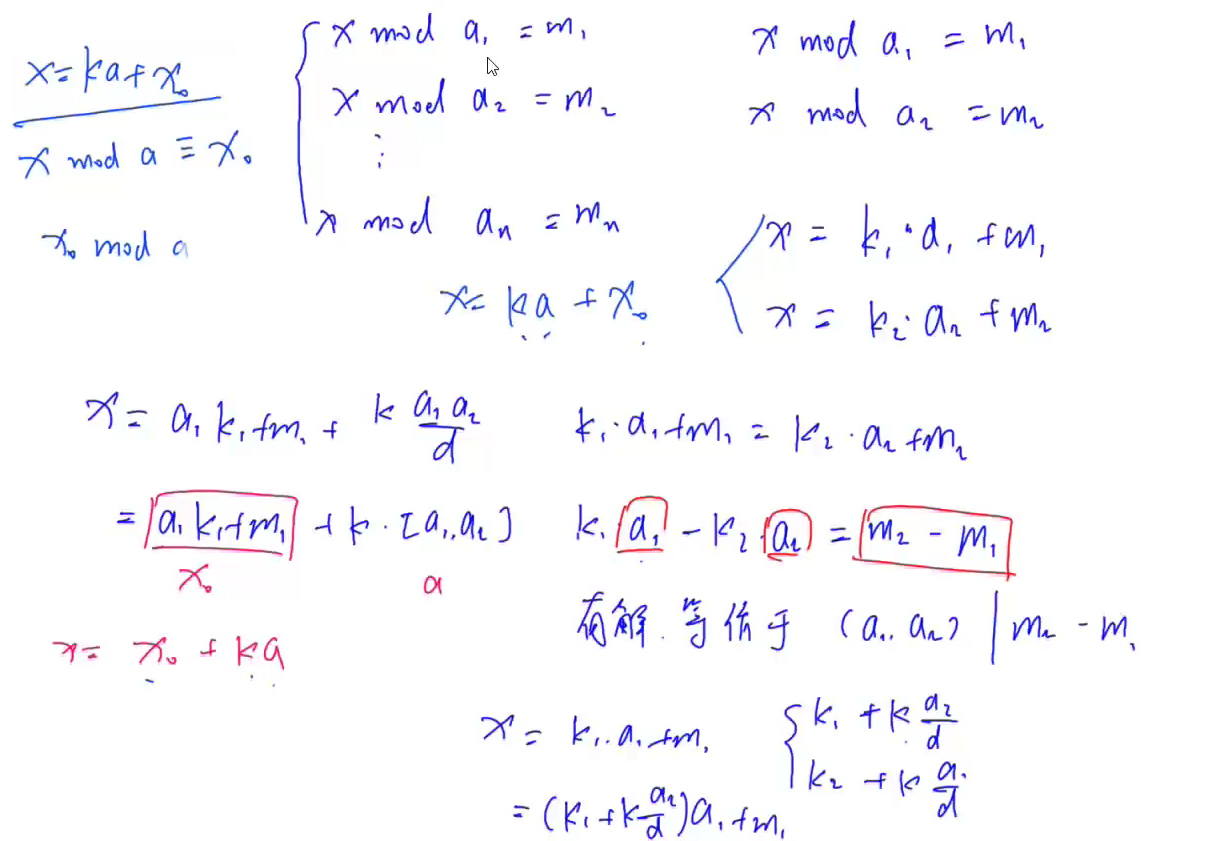 x = ka + x₀
x mod a ≡ x₀
x₀ mod a
x mod a₁ = m₁
x mod a₂ = m₂
⋮
x mod aₙ = mₙ
x = ka + x₀
x mod a₁ = m₁
x mod a₂ = m₂
x = k₁·a₁ + m₁
x = k₂·a₂ + m₂
x = a₁k₁ + m₁ + k a₁a₂/d
= a₁k₁ + m₁ + k·[a₁, a₂]
x₀ a
x = x₀ + ka
k₁·a₁ + m₁ = k₂·a₂ + m₂
k₁ a₁ - k₂·a₂ = m₂ - m₁
有解. 等价于 (a₁, a₂) | m₂ - m₁
x = k₁·a₁ + m₁
= (k₁ + k a₂/d)a₁ + m₁
k₁ + k a₂/d
k₂ + k a₁/d